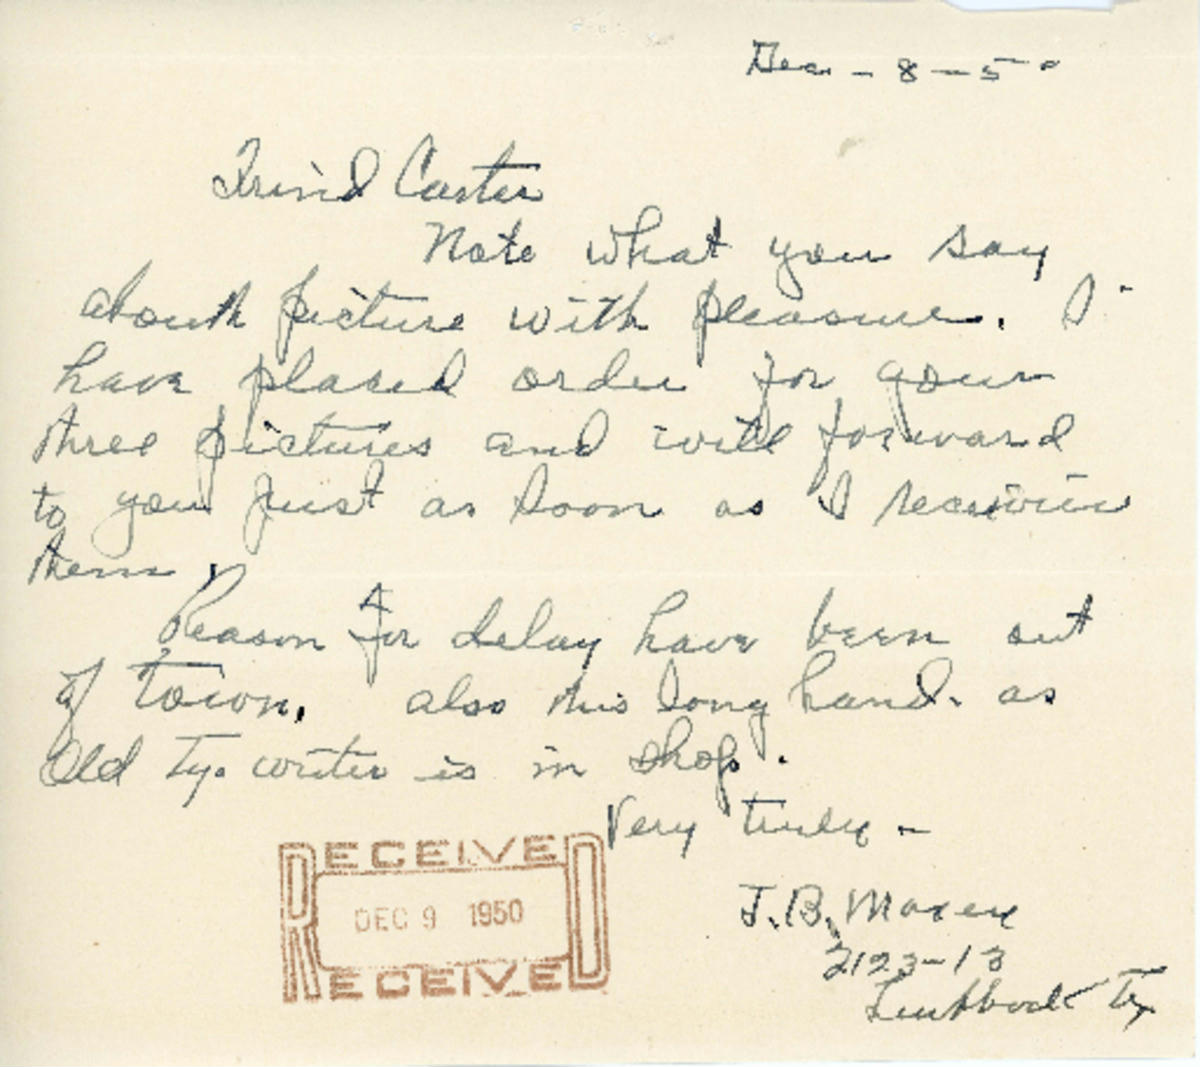 Dec - 8 - 50
Frind Carter
Note what you say
about picture with pleasure. I
have placed order for your
three pictures and will forward
to you just as soon as I
them.
Reason for delay have been out
of town. also this long hand. as
old Ty. writer is in shop.
Very truly -
J. B. Maxey
2123-13
Lubbock Tx
RECEIVED
DEC 9 1950
RECEIVED